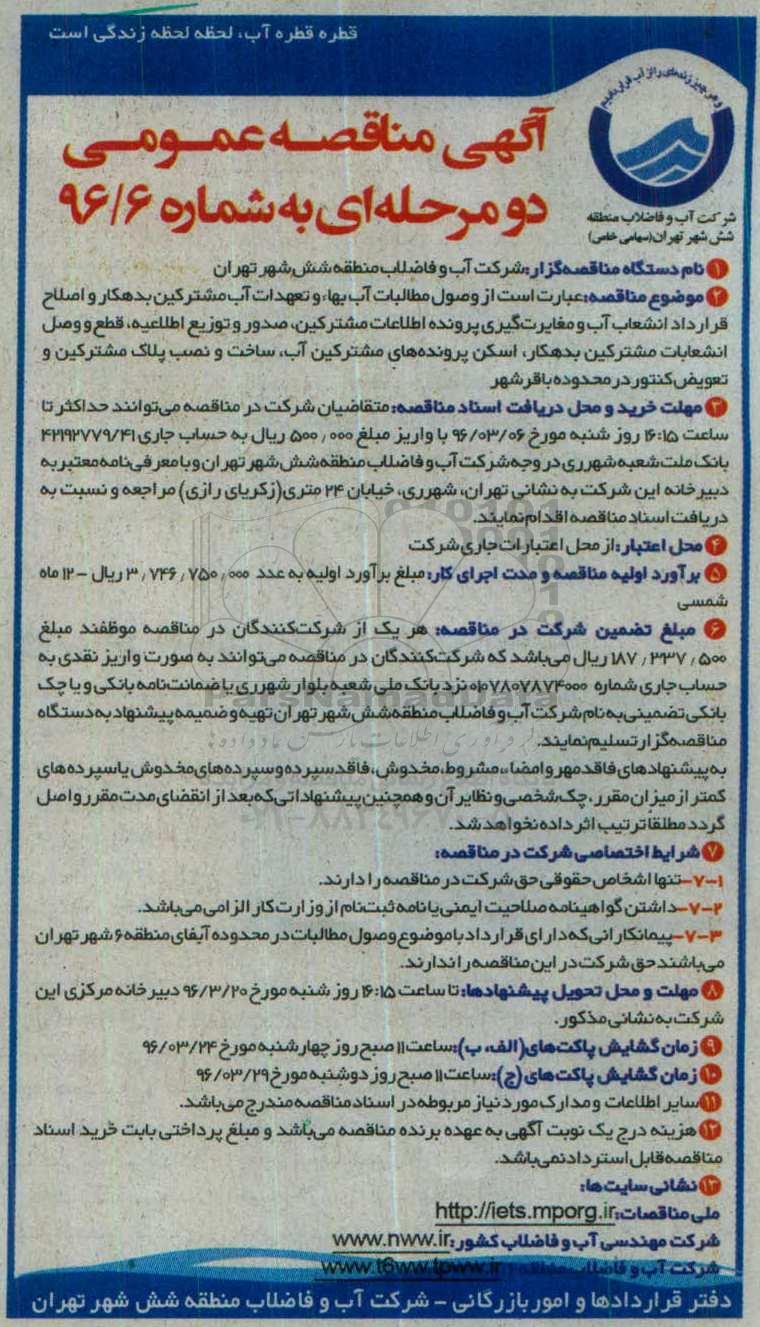 قطره قطره آب، لحظه لحظه زندگی است
آگهی مناقصه عمومی
دو مرحله‌ای به شماره ۹۶/۶
شرکت آب و فاضلاب منطقه
شش شهر تهران (سهامی خاص)
۱ نام دستگاه مناقصه‌گزار: شرکت آب و فاضلاب منطقه شش شهر تهران
۲ موضوع مناقصه: عبارت است از وصول مطالبات آب بهاء و تعهدات آب مشترکین بدهکار و اصلاح
قرارداد انشعاب آب و مغایرت‌گیری پرونده اطلاعات مشترکین، صدور و توزیع اطلاعیه، قطع و وصل
انشعابات مشترکین بدهکار، اسکن پرونده‌های مشترکین آب، ساخت و نصب پلاک مشترکین و
تعویض کنتور در محدوده باقرشهر
۳ مهلت خرید و محل دریافت اسناد مناقصه: متقاضیان شرکت در مناقصه می‌توانند حداکثر تا
ساعت ۱۶:۱۵ روز شنبه مورخ ۹۶/۰۳/۰۶ با واریز مبلغ ۵۰۰٫۰۰۰ ریال به حساب جاری ۴۲۱۹۲۷۷۹/۴۱
بانک ملت شعبه شهرری در وجه شرکت آب و فاضلاب منطقه شش شهر تهران و با معرفی‌نامه معتبر به
دبیرخانه این شرکت به نشانی تهران، شهرری، خیابان ۲۴ متری (زکریای رازی) مراجعه و نسبت به
دریافت اسناد مناقصه اقدام نمایند.
۴ محل اعتبار: از محل اعتبارات جاری شرکت
۵ برآورد اولیه مناقصه و مدت اجرای کار: مبلغ برآورد اولیه به عدد ۳٫۷۴۶٫۷۵۰٫۰۰۰ ریال - ۱۲ ماه
شمسی
۶ مبلغ تضمین شرکت در مناقصه: هر یک از شرکت‌کنندگان در مناقصه موظفند مبلغ
۱۸۷٫۳۳۷٫۵۰۰ ریال می‌باشد که شرکت‌کنندگان در مناقصه می‌توانند به صورت واریز نقدی به
حساب جاری شماره ۰۱۰۷۸۰۷۸۷۴۰۰۰ نزد بانک ملی شعبه بلوار شهرری یا ضمانت‌نامه بانکی و یا چک
بانکی تضمینی به نام شرکت آب و فاضلاب منطقه شش شهر تهران تهیه و ضمیمه پیشنهاد به دستگاه
مناقصه‌گزار تسلیم نمایند.
به پیشنهادهای فاقد مهر و امضاء، مشروط، مخدوش، فاقد سپرده و سپرده‌های مخدوش یا سپرده‌های
کمتر از میزان مقرر، چک شخصی و نظایر آن و همچنین پیشنهاداتی که بعد از انقضای مدت مقرر واصل
گردد مطلقا ترتیب اثر داده نخواهد شد.
۷ شرایط اختصاصی شرکت در مناقصه:
۷-۱-تنها اشخاص حقوقی حق شرکت در مناقصه را دارند.
۷-۲-داشتن گواهینامه صلاحیت ایمنی یا نامه ثبت‌نام از وزارت کار الزامی می‌باشد.
۷-۳-پیمانکارانی که دارای قرارداد با موضوع وصول مطالبات در محدوده آبفای منطقه ۶ شهر تهران
می‌باشند حق شرکت در این مناقصه را ندارند.
۸ مهلت و محل تحویل پیشنهادها: تا ساعت ۱۶:۱۵ روز شنبه مورخ ۹۶/۳/۲۰ دبیرخانه مرکزی این
شرکت به نشانی مذکور.
۹ زمان گشایش پاکت‌های (الف، ب): ساعت ۱۱ صبح روز چهارشنبه مورخ ۹۶/۰۳/۲۴
۱۰ زمان گشایش پاکت‌های (ج): ساعت ۱۱ صبح روز دوشنبه مورخ ۹۶/۰۳/۲۹
۱۱ سایر اطلاعات و مدارک مورد نیاز مربوطه در اسناد مناقصه مندرج می‌باشد.
۱۲ هزینه درج یک نوبت آگهی به عهده برنده مناقصه می‌باشد و مبلغ پرداختی بابت خرید اسناد
مناقصه قابل استرداد نمی‌باشد.
۱۳ نشانی سایت‌ها:
ملی مناقصات: http://iets.mporg.ir
شرکت مهندسی آب و فاضلاب کشور: www.nww.ir
شرکت آب و فاضلاب منطقه ۶: www.t6ww.tpww.ir
دفتر قراردادها و امور بازرگانی - شرکت آب و فاضلاب منطقه شش شهر تهران